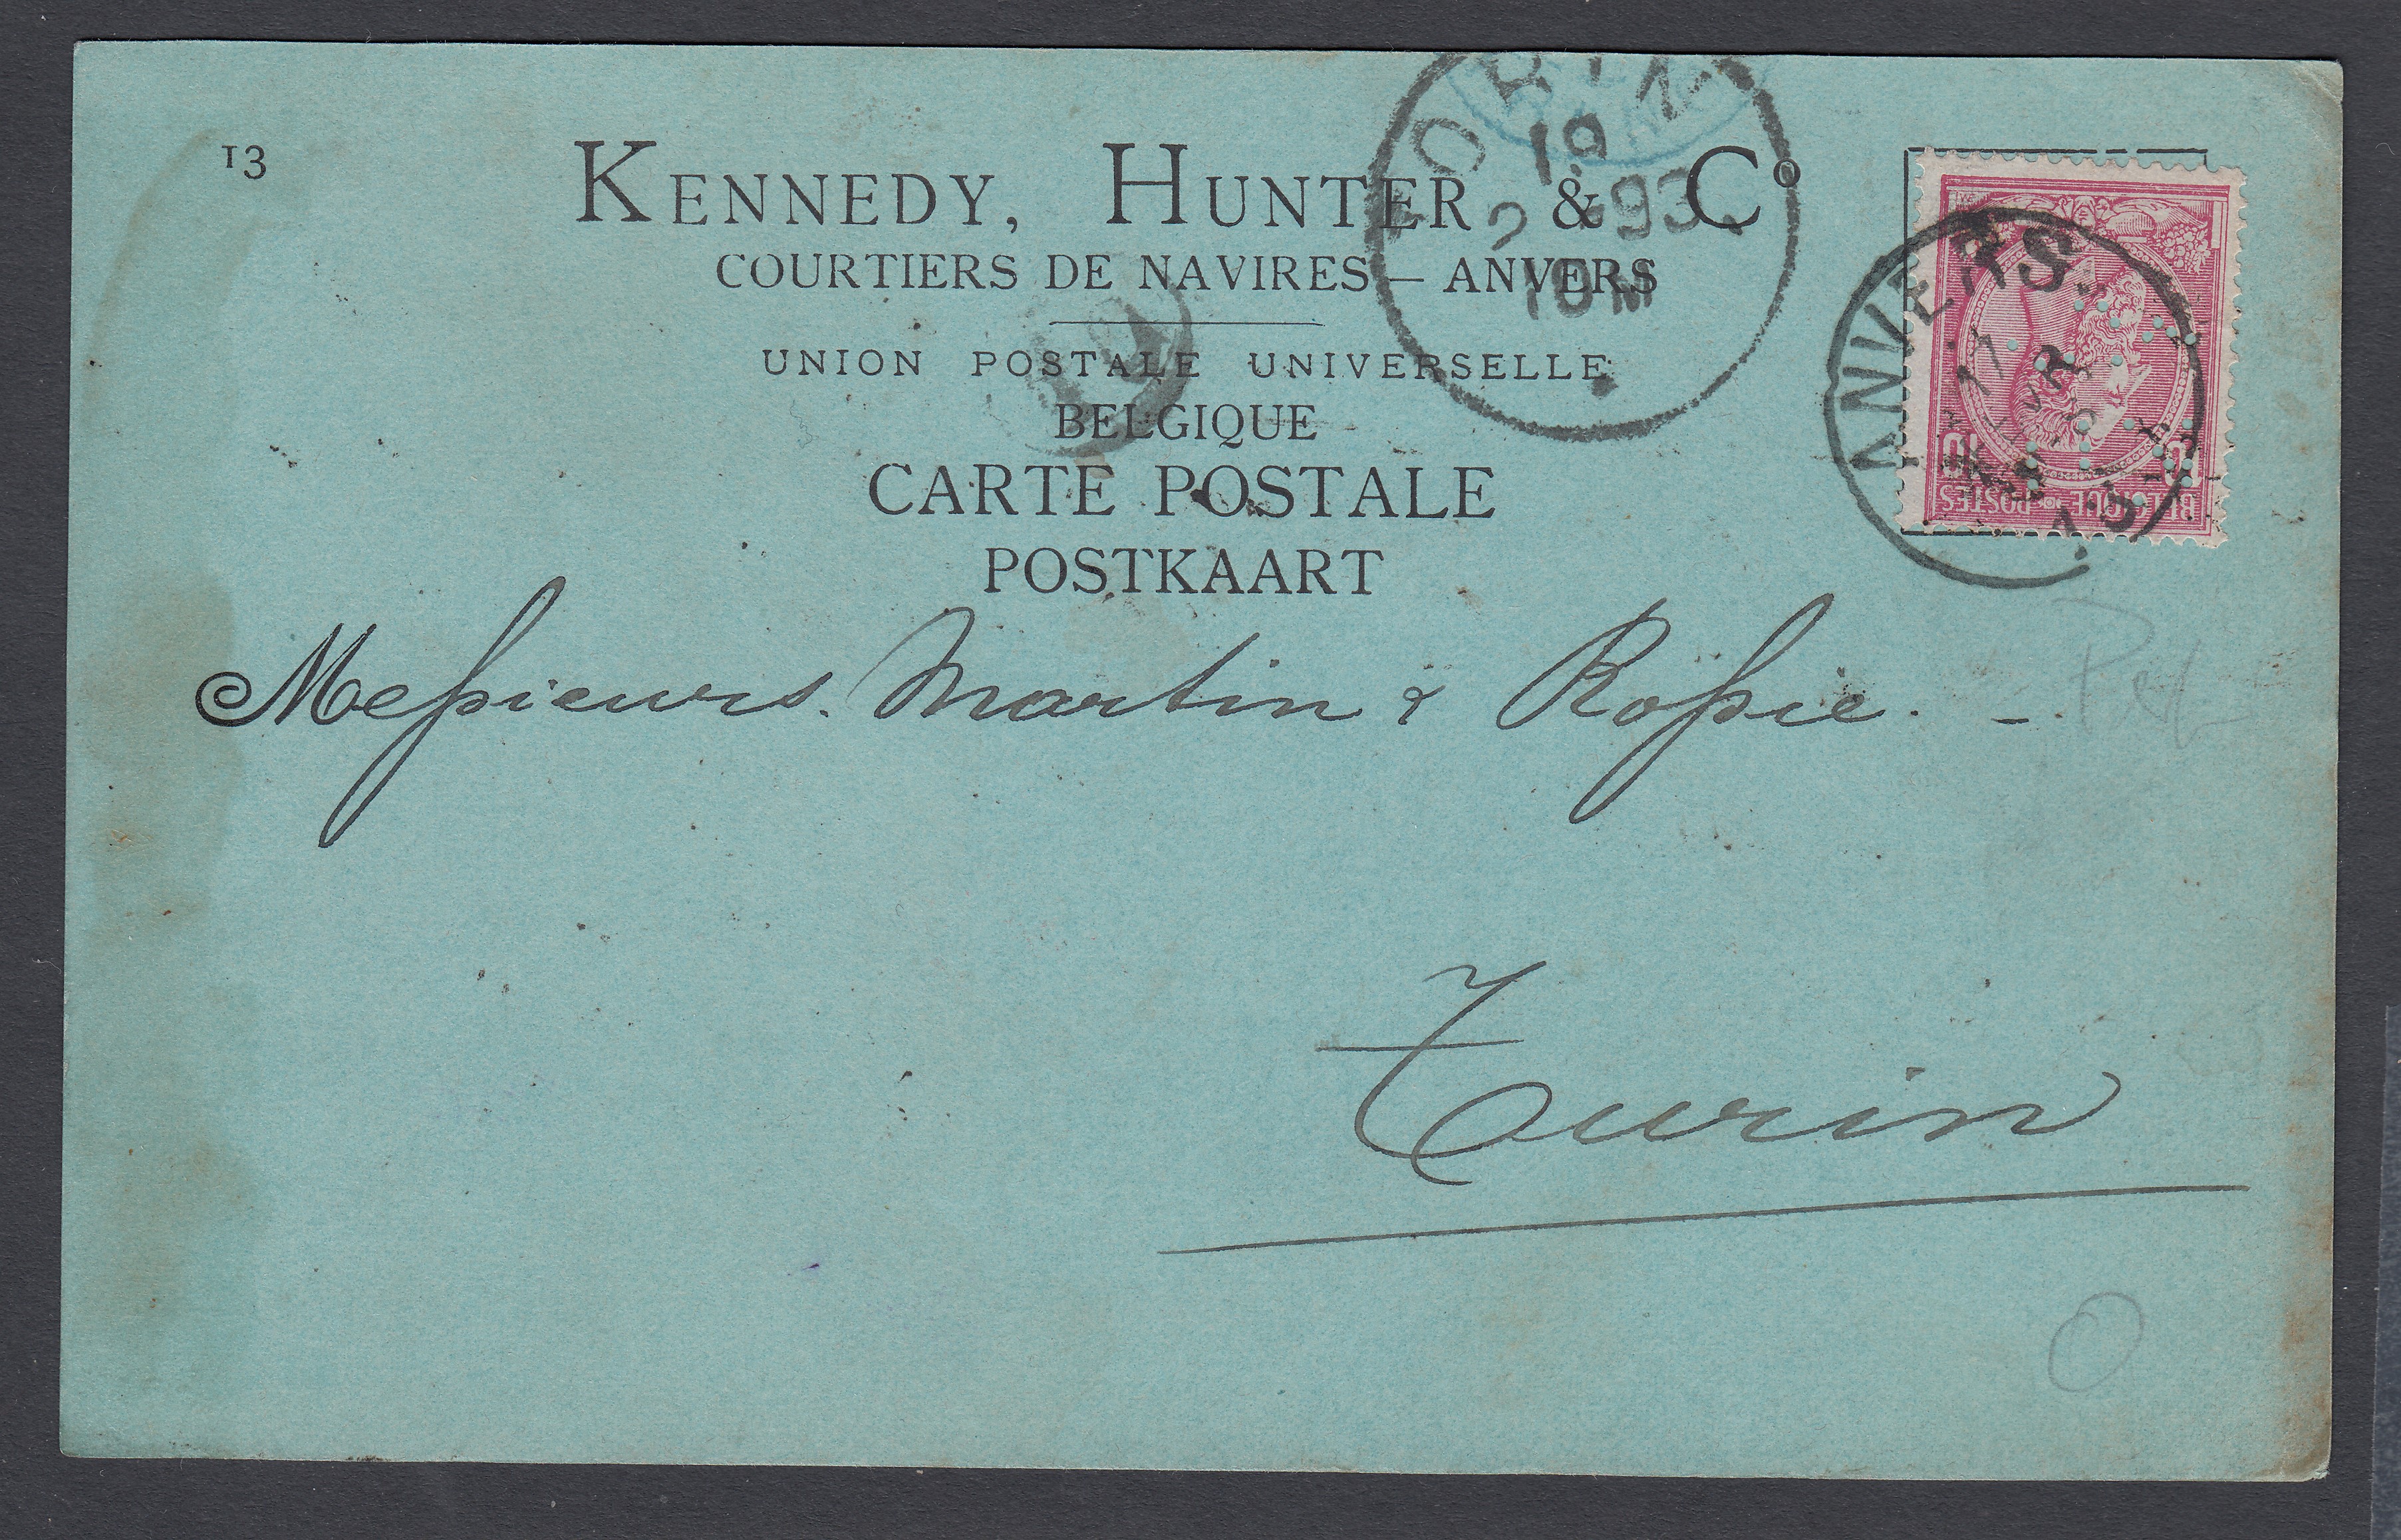 13
KENNEDY, HUNTER & Co
COURTIERS DE NAVIRES — ANVERS
UNION POSTALE UNIVERSELLE
BELGIQUE
CARTE POSTALE
POSTKAART
TORIN
19
2 93
10 M
ANVERS
17
BELGIQUE POSTES
10
Messieurs. Martin & Rossie. -
Turin
Perf